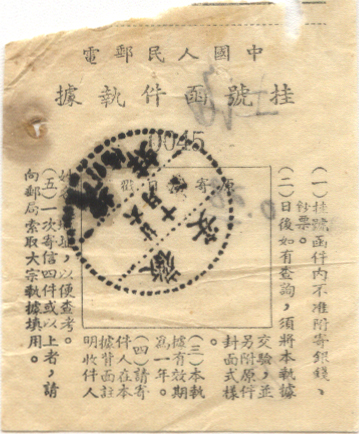 中國人民郵電
挂號函件執據
0045
原寄局日戳
(一)挂號函件内不准附寄銀錢、
鈔票。
(二)日後如有查詢,須將本執據
交驗,並
另附原件
封面式樣
。
(三)本執
據有效期
為一年。
(四)請寄
件人在本
據背面註
明收件人
姓名、地址,以便查考。
(五)一次寄信四件或以上者,請
向郵局索取大宗執據填用。